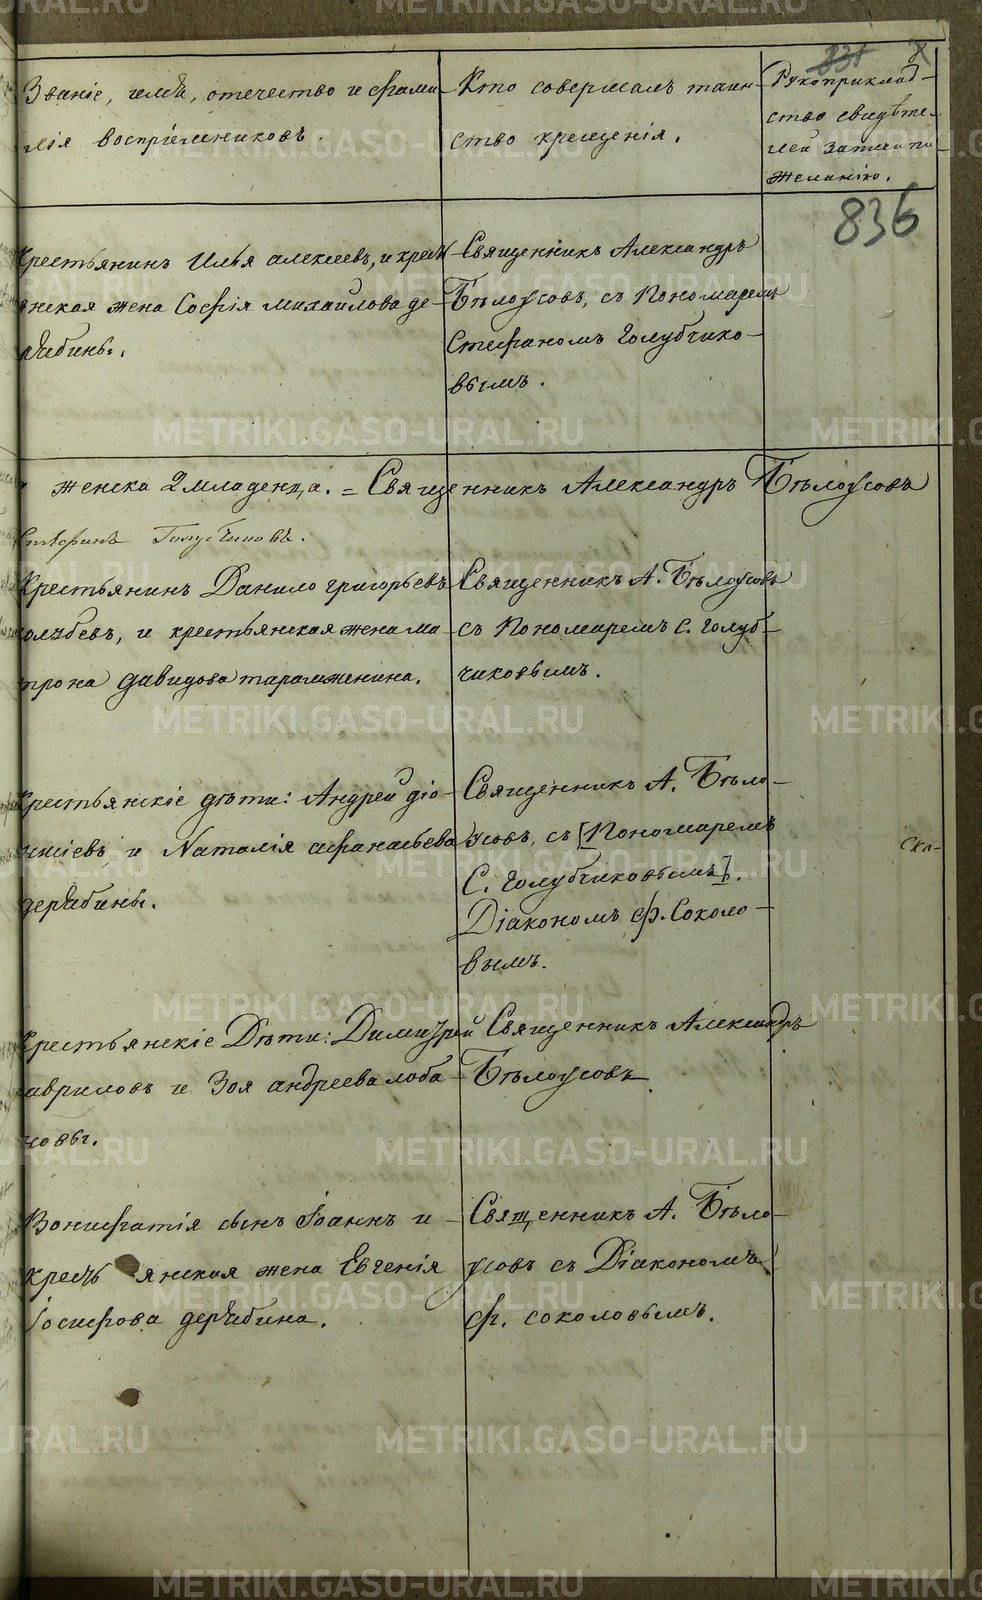 831
Званіе, имѧ, отечество и фами-
лія воспріемниковъ.
Кто совершалъ таин-
ство крещенія.
Рукоприклад-
ство свидѣте-
лей записи по
желанію.
836
Крестьянинъ Илья алексеевъ, и кресть-
янская жена Софія михайлова де-
рѧбины.
Священникъ Александръ
Бѣлоусовъ, съ Пономаремъ
Стефаномъ Голубчико-
вымъ.
женска 2 младенца. = Священникъ Александръ Бѣлоусовъ
Стефанъ Голубчиковъ.
Крестьянинъ Данило григорьевъ
и крестьянская жена ма-
трона давидова
Священникъ А. Бѣлоусовъ
съ Пономаремъ С. Голуб-
чиковымъ.
Крестьянскіе дѣти: Андрей діо-
нисіевъ, и Наталія афанасьева
дерѧбины.
Священникъ А. Бѣло-
усовъ, съ [Пономаремъ
С. Голубчиковымъ].
Діакономъ Ф. Соколо-
вымъ.
Ска-
Крестьянскіе Дѣти: Димитрій
гавриловъ и Зоя андреева лоба-
новы.
Священникъ Александръ
Бѣлоусовъ
Вонифатія сынъ Іоаннъ и
крестьянская жена Евгенія
Іосифова дерѧбина.
Священникъ А. Бѣло-
усовъ съ Діакономъ
Ф. соколовымъ.
METRIKI.GASO-URAL.RU